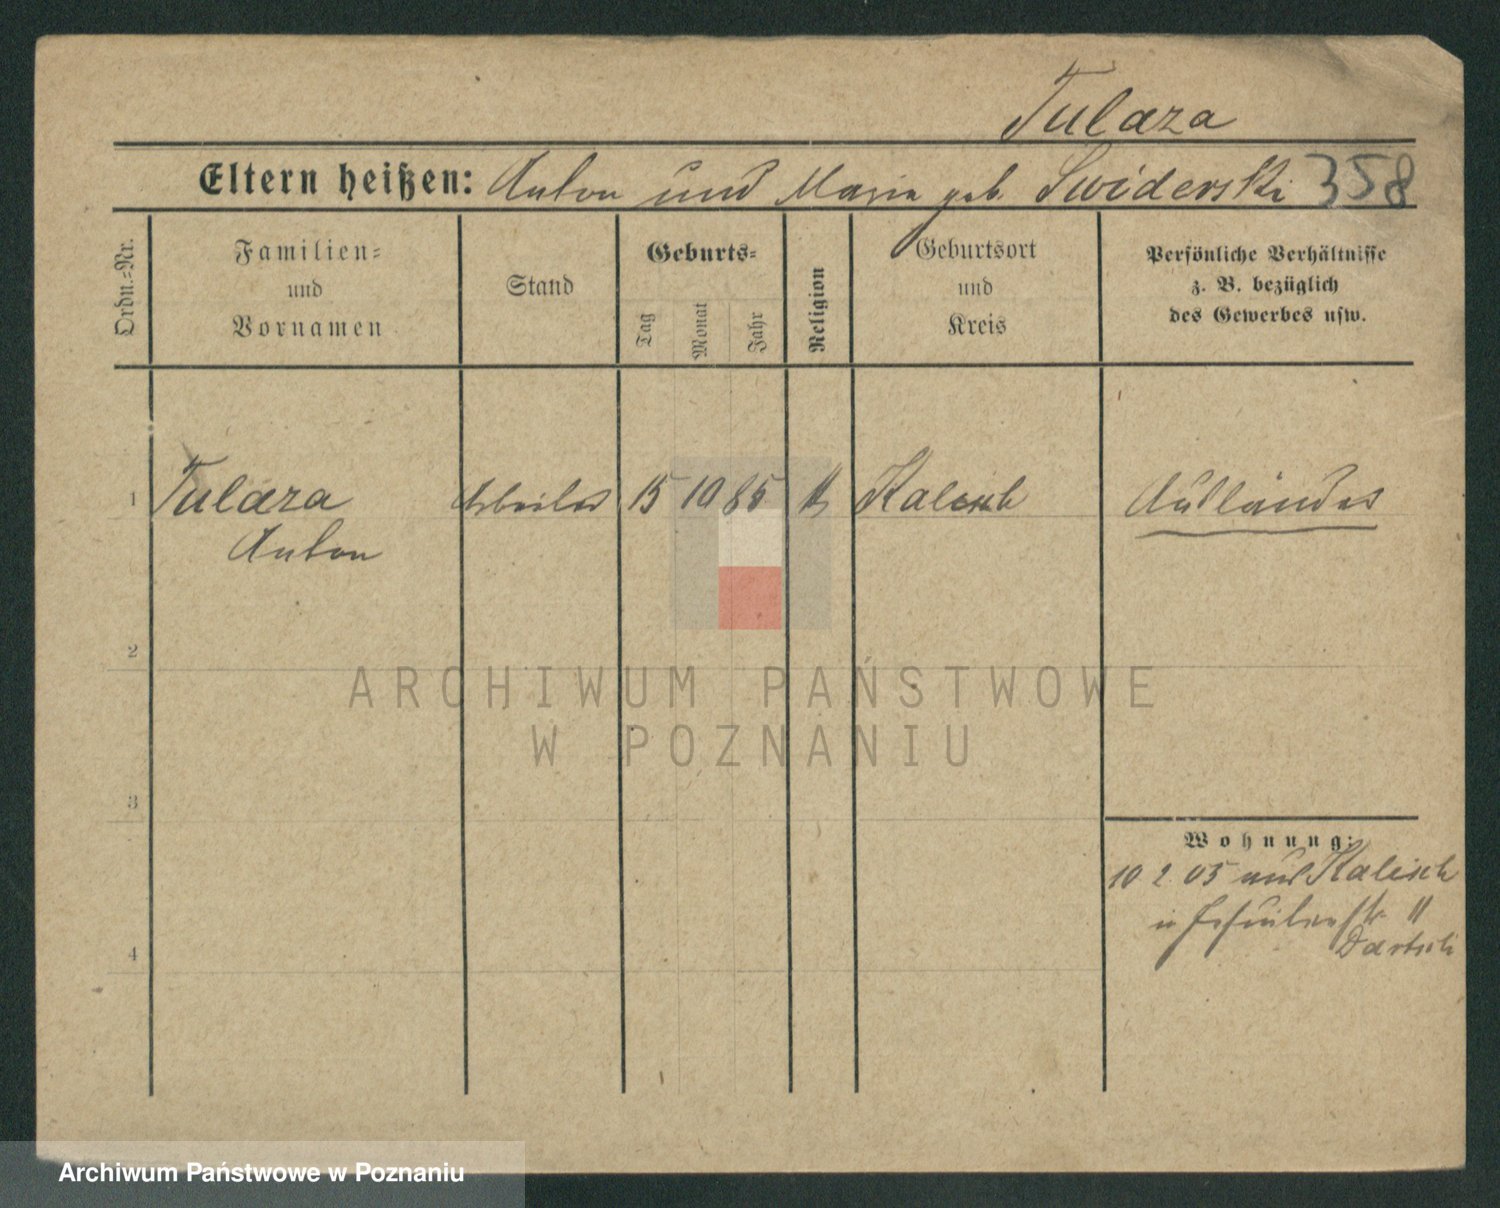 Tulaza
Eltern heißen: Anton und Maria geb. Swiderski 358
Ordn.-Nr.
Familien- und Vornamen
Stand
Geburts-
Tag Monat Jahr
Religion
Geburtsort und Kreis
Persönliche Verhältnisse
z. B. bezüglich
des Gewerbes usw.
1 Tulaza Arbeiter 15 10 85 K Kalisch Ausländer
Anton
2
ARCHIWUM PAŃSTWOWE
W POZNANIU
3
Wohnung:
10 2 05 aus Kalisch
n Jesuitenstr. 11
4
Archiwum Państwowe w Poznaniu